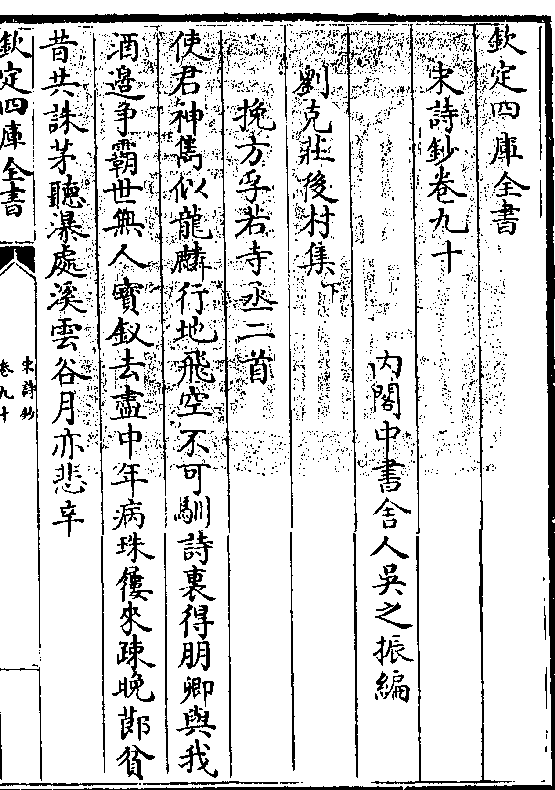 欽定四庫全書
宋詩鈔卷九十
內閣中書舍人吳之振編
劉克莊後村集下
挽方孚若寺丞二首
使君神雋似龍麟行地飛空不可馴詩裏得朋卿與我
酒邉爭霸世無人寳釵去盡中年病珠屨來疎晚節貧
昔共誅茅聽瀑處溪雲谷月亦悲辛
欽定四庫全書
宋詩鈔
卷九十